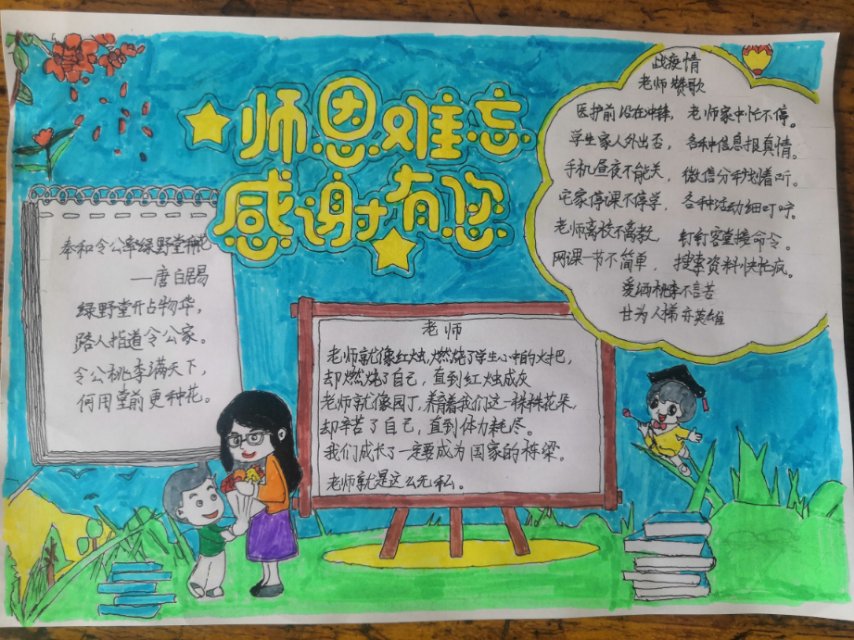 师恩难忘
感谢有您
奉和令公率绿野堂种花
—唐白居易
绿野堂开占物华，
路人指道令公家。
令公桃李满天下，
何用堂前更种花。
老师
老师就像红烛，燃烧了学生心中的火把，
却燃烧了自己，直到红烛成灰
老师就像园丁，养育着我们这一株株花朵，
却辛苦了自己，直到体力耗尽。
我们成长了一定要成为国家的栋梁。
老师就是这么无私。
战疫情
老师赞歌
医护前沿在冲锋，老师家中忙不停。
学生家人外出否，各种信息报真情。
手机昼夜不能关，微信分秒盯着听。
宅家停课不停学，各种活动细叮咛。
老师离校不离教，钉钉客堂接命令。
网课一节不简单，搜索资料快忙疯。
爱洒桃李不言苦
甘为人梯亦英雄